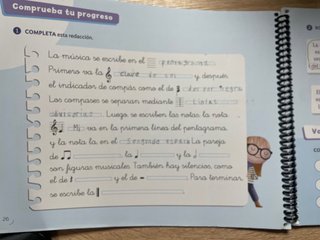 Comprueba tu progreso
1 COMPLETA esta redacción.
La música se escribe en el pentagrama.
Primero va la clave de sol y después
el indicador de compás como el de dos por negra.
Los compases se separan mediante líneas
divisorias. Luego se escriben las notas: la nota
Mi va en la primera línea del pentagrama
y la nota la, en el segundo espacio. La pareja
de , la y la
son figuras musicales. También hay silencios, como
el de y el de . Para terminar
se escribe la
26